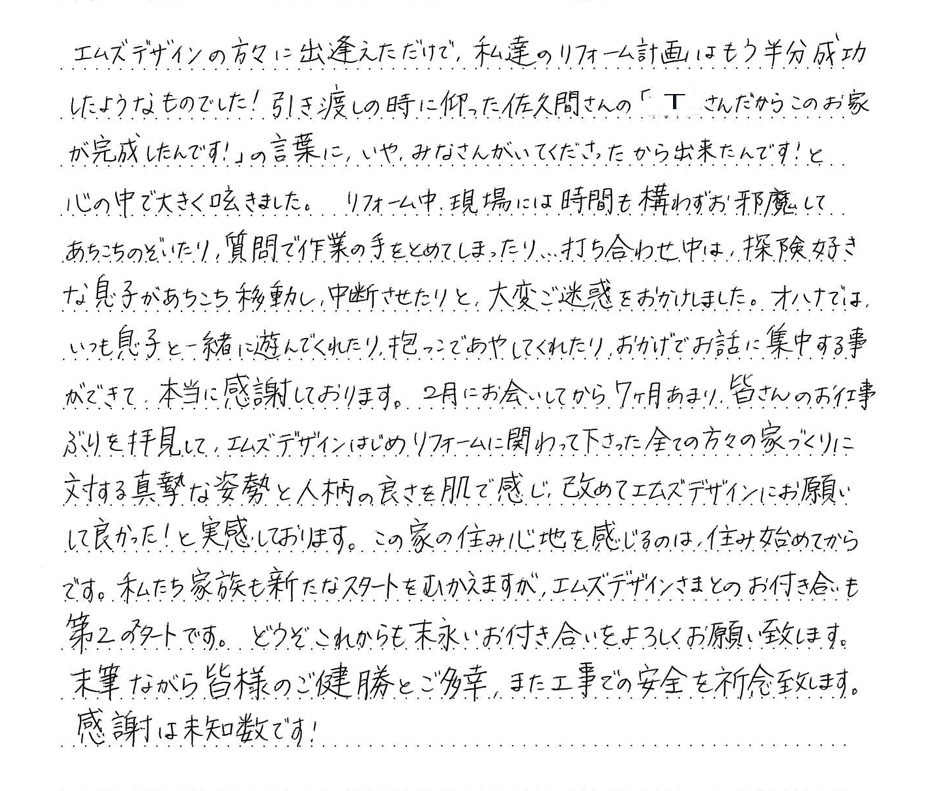 エムズデザインの方々に出逢えただけで、私達のリフォーム計画はもう半分成功
したようなものでした！引き渡しの時に仰った佐久間さんの「Tさんだからこのお家
が完成したんです！」の言葉に、いや、みなさんがいてくださったから出来たんです！と
心の中で大きく呟きました。 リフォーム中、現場には時間も構わずお邪魔して
あちこちのぞいたり、質問で作業の手をとめてしまったり…打ち合わせ中は、探険好き
な息子があちこち移動し、中断させたりと、大変ご迷惑をおかけしました。オハナでは、
いつも息子と一緒に遊んでくれたり、抱っこであやしてくれたり、おかげでお話に集中する事
ができて、本当に感謝しております。2月にお会いしてから7ヶ月あまり、皆さんのお仕事
ぶりを拝見して、エムズデザインはじめリフォームに関わって下さった全ての方々の家づくりに
対する真摯な姿勢と人柄の良さを肌で感じ、改めてエムズデザインにお願い
して良かった！と実感しております。この家の住み心地を感じるのは、住み始めてから
です。私たち家族も新たなスタートをむかえますが、エムズデザインさまとのお付き合いも
第2のスタートです。 どうぞこれからも末永いお付き合いをよろしくお願い致します。
末筆ながら皆様のご健勝とご多幸、また工事での安全を祈念致します。
感謝は未知数です！